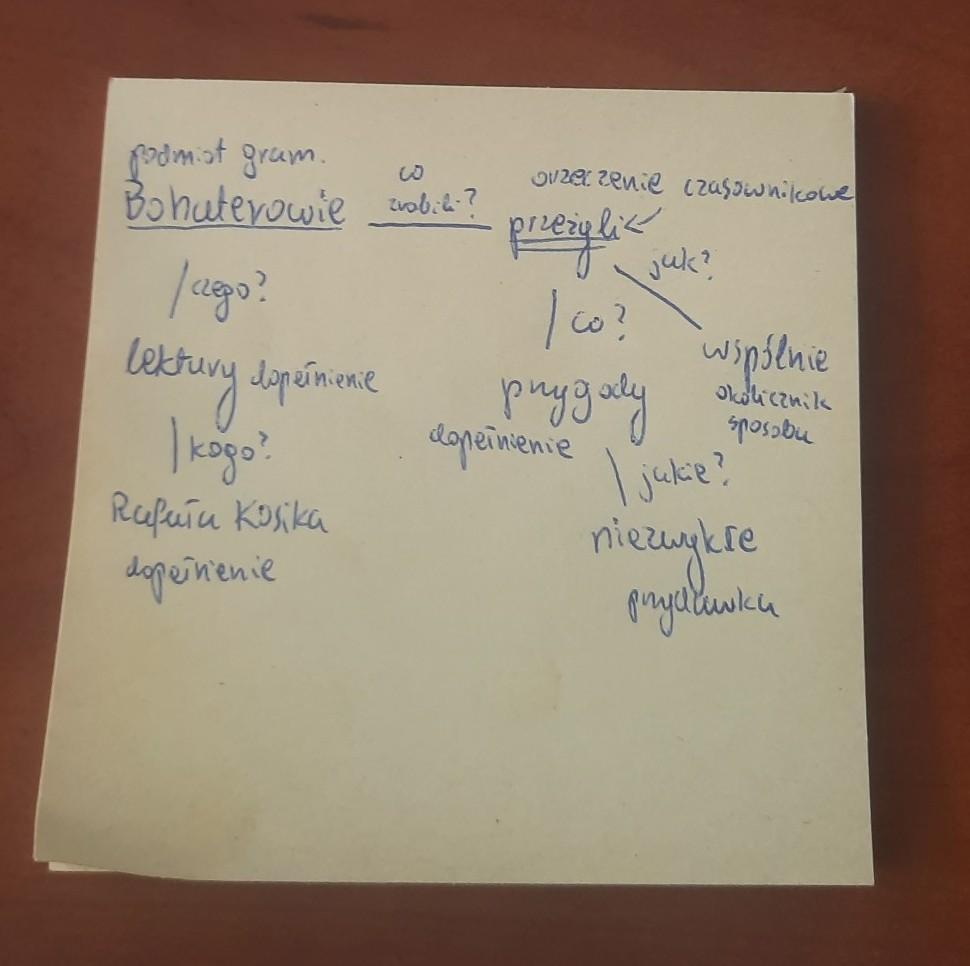 podmiot gram.
co
zrobili?
orzeczenie czasownikowe
Bohaterowie
przeżyli
czego?
jak?
co?
lektury dopełnienie
wspólnie
przygody
okolicznik
sposobu
kogo?
dopełnienie
jakie?
Rafała Kosika
niezwykłe
dopełnienie
przydawka